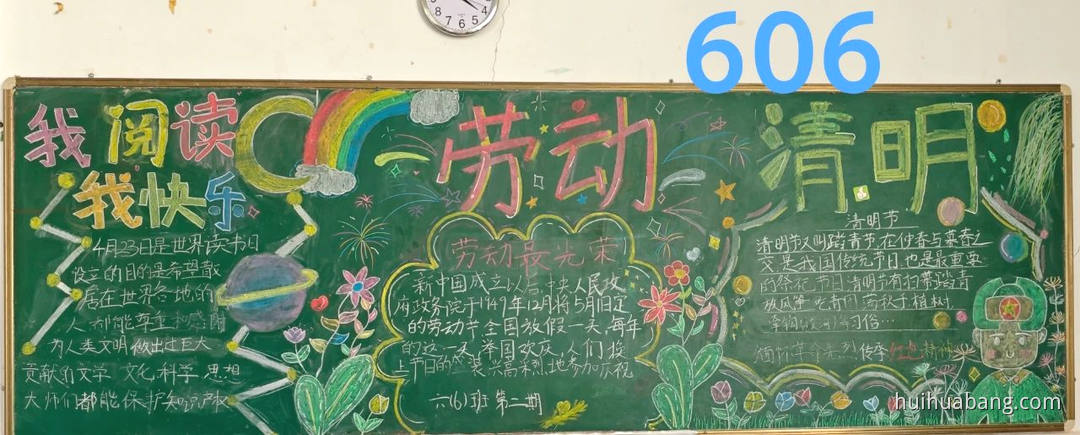 606
我阅读
我快乐
4月23日是世界读书日
设立的目的是希望散
居在世界各地的
人都能尊重和感谢
为人类文明做出过巨大
贡献的文学 文化 科学 思想
大师们都能保护知识产权
劳动
劳动最光荣
新中国成立以后 中央人民政
府政务院于1949年12月将5月1日定
的劳动节全国放假一天 每年
的这一天 举国欢庆 人们换
上节日的 装 兴高采烈地参加庆祝
六(6)班 第二期
清明
清明节
清明节又叫踏青节 在仲春与暮春之
交 是我国传统节日 也是最重要
的祭祀节日 清明节有扫墓踏青
放风筝 荡秋千 植树
习俗…
缅怀革命先烈 传承红色精神
huihuabang.com